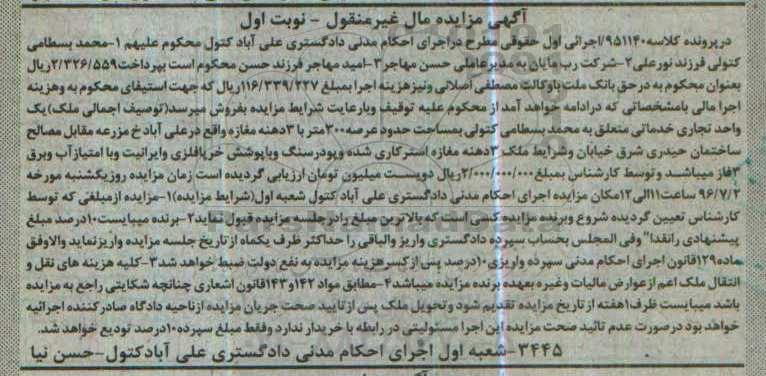 آگهی مزایده مال غیرمنقول - نوبت اول
درپرونده کلاسه۹۵۱۱۴۰/اجرائی اول حقوقی مطرح دراجرای احکام مدنی دادگستری علی آباد کتول محکوم علیهم ۱-محمد بسطامی
کتولی فرزند نورعلی۲-شرکت رب مایان به مدیرعاملی حسن مهاجر۳-امید مهاجر فرزند حسن محکوم است بپرداخت۲/۳۲۶/۵۵۹ریال
بعنوان محکوم به درحق بانک ملت باوکالت مصطفی اصلانی ونیزهزینه اجرا بمبلغ ۱۱۶/۳۳۹/۲۲۷ریال که جهت استیفای محکوم به وهزینه
اجرا مالی بامشخصاتی که درادامه خواهد آمد از محکوم علیه توقیف وبارعایت شرایط مزایده بفروش میرسد(توصیف اجمالی ملک)یک
واحد تجاری خدماتی متعلق به محمد بسطامی کتولی بمساحت حدود عرصه۳۰۰متر با۳دهنه مغازه واقع درعلی آبادخ مزرعه مقابل مصالح
ساختمان حیدری شرق خیابان وشرایط ملک ۳دهنه مغازه استرکاری شده وپودرسنگ وباپوشش خرپافلزی وایرانیت وبا امتیازآب وبرق
۳فاز میباشد وتوسط کارشناس بمبلغ۲/۰۰۰/۰۰۰/۰۰۰ریال دویست میلیون تومان ارزیابی گردیده است زمان مزایده روزیکشنبه مورخه
۹۶/۷/۲ ساعت۱۱الی۱۲مکان مزایده اجرای احکام مدنی دادگستری علی آباد کتول شعبه اول(شرایط مزایده)۱-مزایده ازمبلغی که توسط
کارشناس تعیین گردیده شروع وبرنده مزایده کسی است که بالاترین مبلغ رادرجلسه مزایده قبول نماید۲-برنده میبایست۱۰درصد مبلغ
پیشنهادی رانقدا" وفی المجلس بحساب سپرده دادگستری واریز والباقی را حداکثر ظرف یکماه ازتاریخ جلسه مزایده واریزنماید والاوفق
ماده۱۲۹قانون اجرای احکام مدنی سپرده واریزی۱۰(درصد پس ازکسرهزینه مزایده به نفع دولت ضبط خواهد شد۳-کلیه هزینه های نقل و
انتقال ملک اعم ازعوارض مالیات وغیره بعهده برنده مزایده میباشد۴-مطابق مواد ۱۴۲و۱۴۳قانون اشعاری چنانچه شکایتی راجع به مزایده
باشد میبایست ظرف۱هفته ازتاریخ مزایده تقدیم شود وتحویل ملک پس ازتایید صحت جریان مزایده ازناحیه دادگاه صادرکننده اجرائیه
خواهد بود درصورت عدم تائید صحت مزایده این اجرا مسئولیتی در رابطه با خریدار ندارد وفقط مبلغ سپرده۱۰درصد تودیع خواهد شد.
۳۴۴۵-شعبه اول اجرای احکام مدنی دادگستری علی آبادکتول-حسن نیا